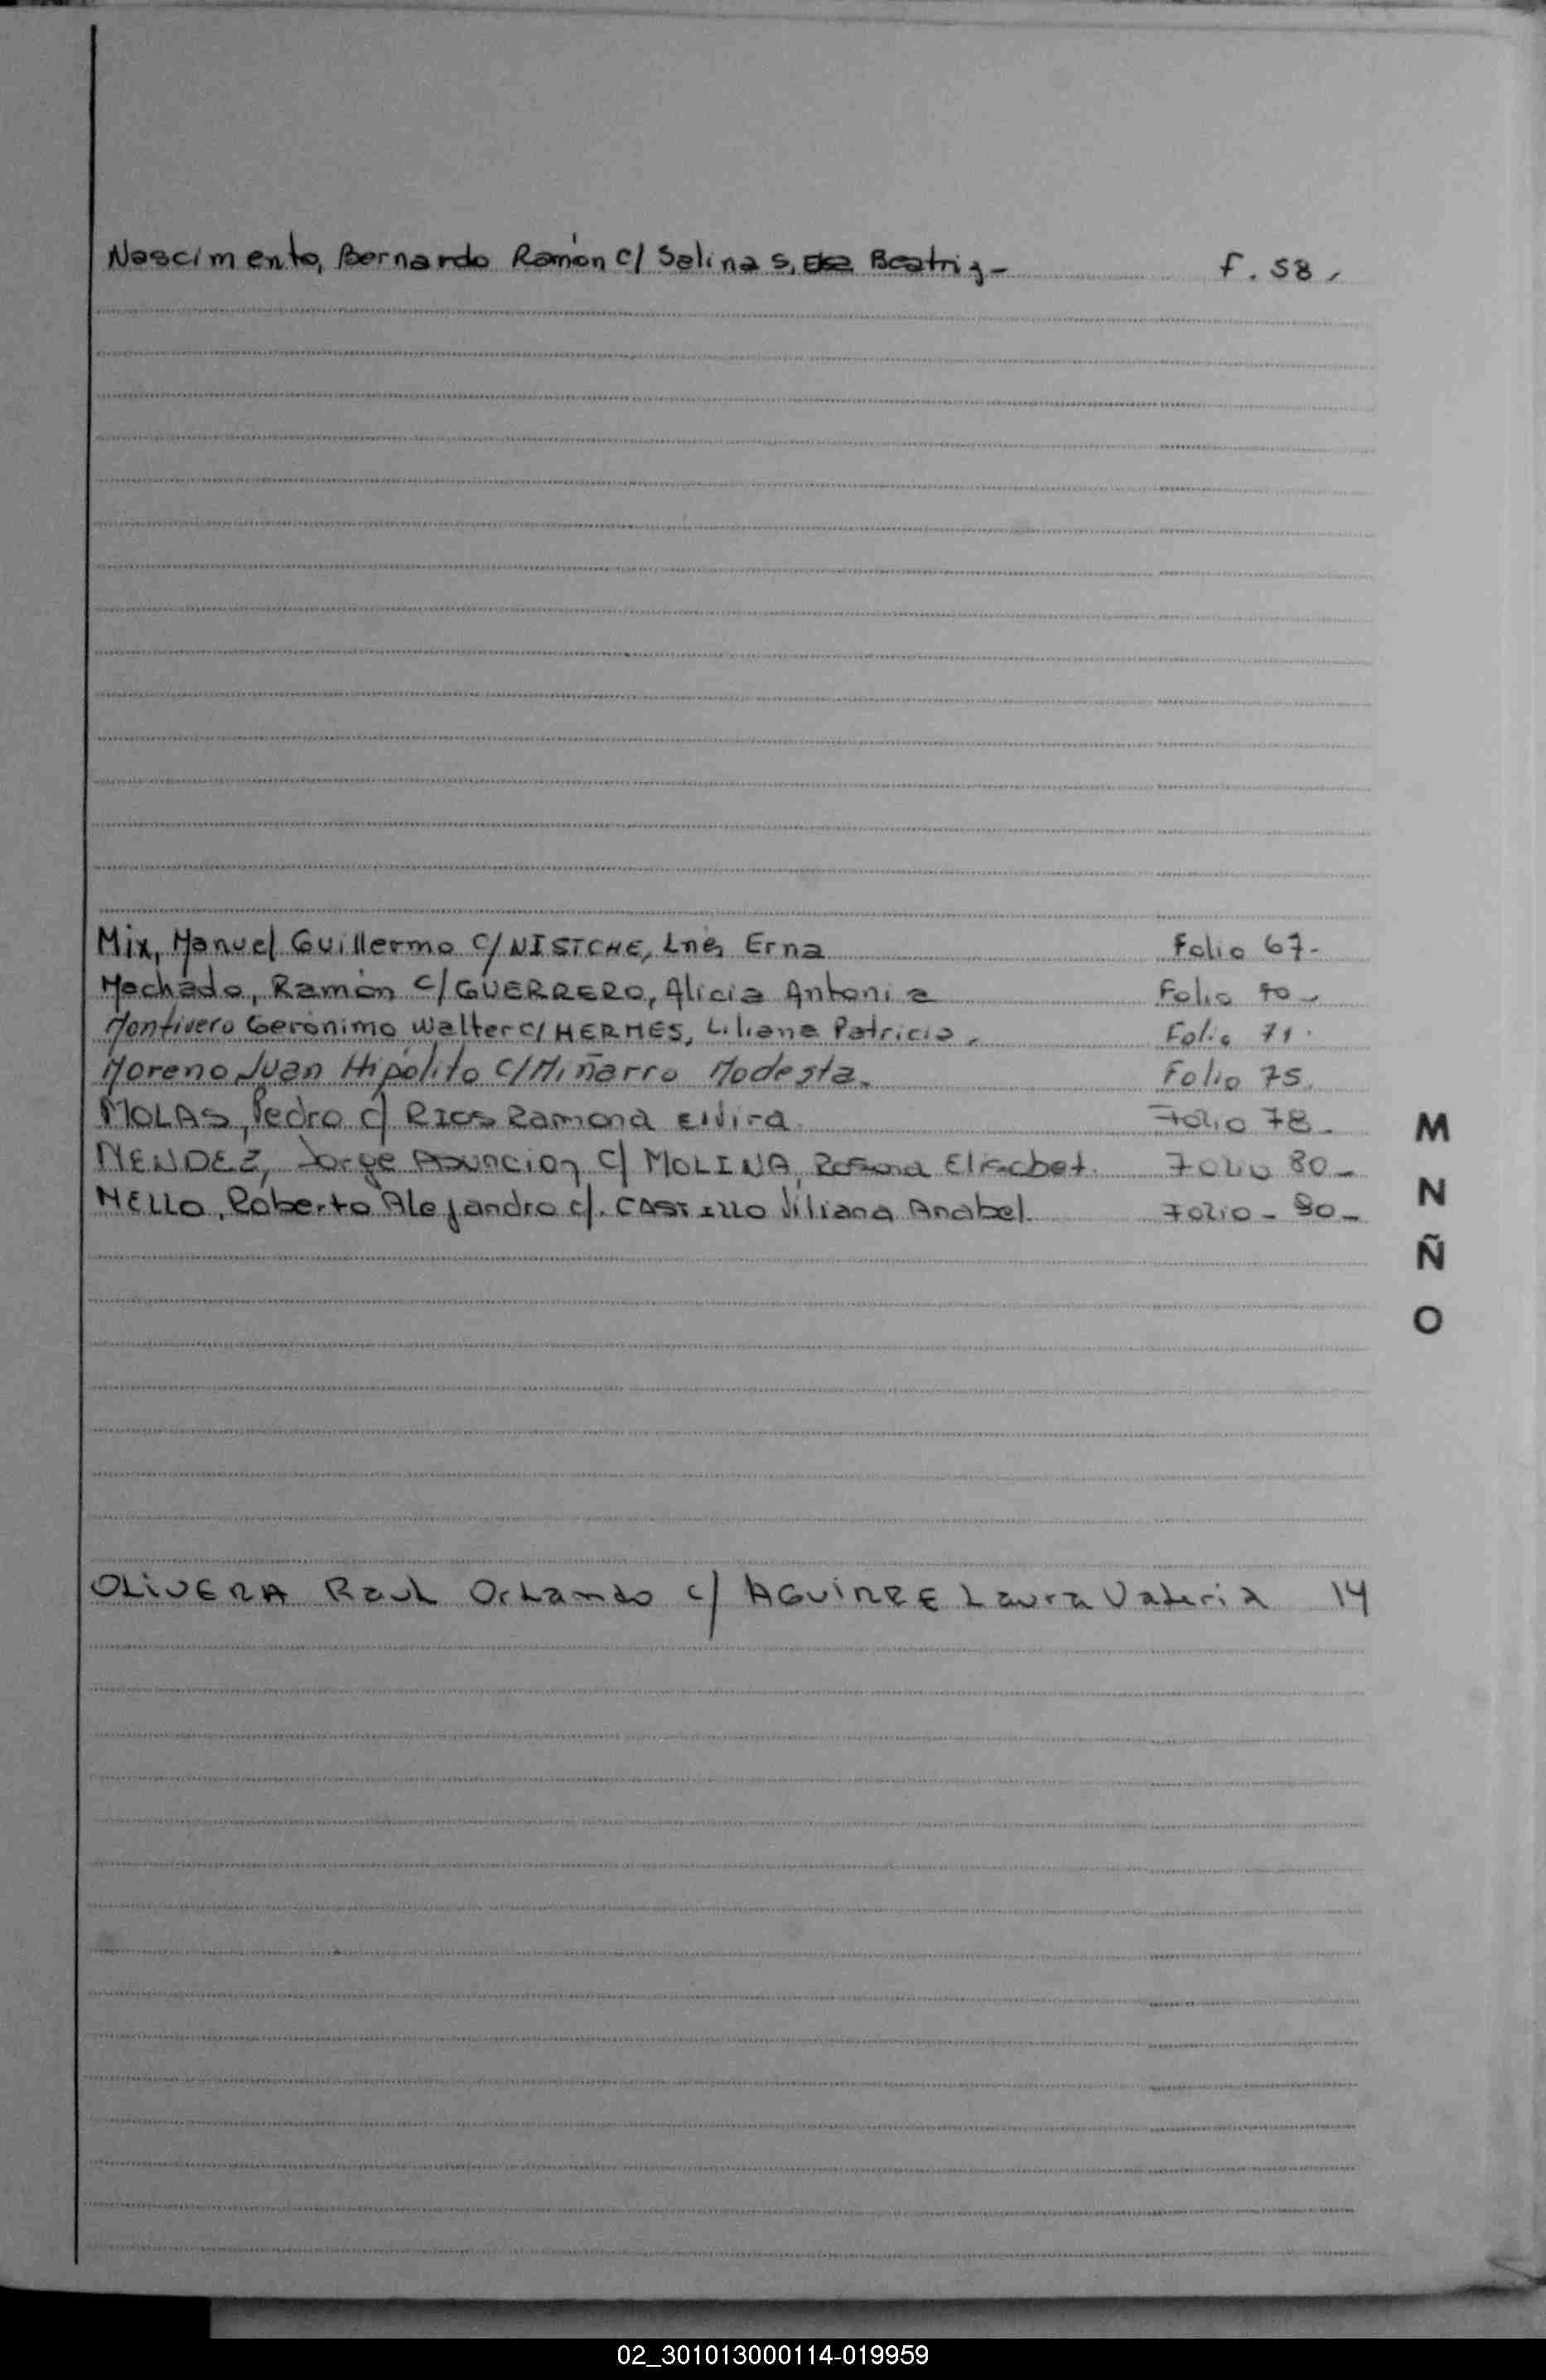 Nascimento, Bernardo Ramón c/ Salinas, Beatriz - f. 58.
Mix, Manuel Guillermo c/ NISTCHE, Inés Erna Folio 67-
Machado, Ramón c/ GUERRERO, Alicia Antonia Folio 70-
Montivero Gerónimo Walter c/ HERMES, Liliana Patricia. Folio 71.
Moreno Juan Hipólito c/ Miñarro Modesta. Folio 75.
MOLAS, Pedro c/ RIOS Ramona Elvira. Folio 78.
MENDEZ, Jorge Asuncion c/ MOLINA, Rosana Elisabet. Folio 80-
MELLO, Roberto Alejandro c/. CASTILLO Viliana Anabel. Folio - 90-
OLIVERA Raul Orlando c/ AGUIRRE Laura Valeria 14
M
N
Ñ
O
02_301013000114-019959